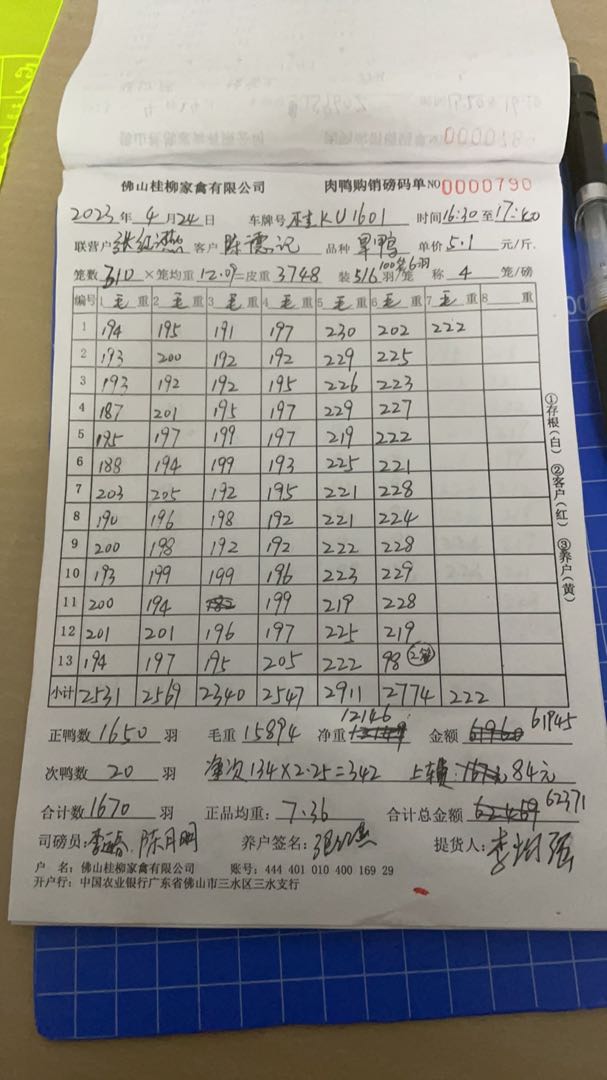 佛山桂柳家禽有限公司 肉鸭购销磅码单 NO 0000790
2023年 4月24日 车牌号 桂KU1601 时间16:30至17:40
联营户 张红燕 客户 陈德记 品种 旱鸭 单价 5.1 元/斤.
100笼6羽
笼数 310 ×笼均重 12.09 =皮重 3748 装 5/6 羽/笼 称 4 笼/磅
编号 1 毛 重 2 毛 重 3 毛 重 4 毛 重 5 毛 重 6 毛 重 7 毛 重 8 重
1 194 195 191 197 230 202 222
2 193 200 192 192 229 225
3 193 192 192 195 226 223
4 187 201 195 197 229 227
5 195 197 199 197 219 222
6 188 194 199 193 225 221
7 203 205 192 195 221 228
8 190 196 198 192 221 224
9 200 198 192 192 222 228
10 193 199 199 196 223 229
11 200 194 199 219 228
12 201 201 196 197 225 219
13 194 197 195 205 222 98
小计 2531 2569 2340 2547 2911 2774 222
正鸭数 1650 羽 毛重 15894 净重 12146 金额 61945
次鸭数 20 羽 净次134×2.25=342 84元
合计数 1670 羽 正品均重: 7.36 合计总金额 62371
司磅员: 养户签名: 提货人:
户 名: 佛山桂柳家禽有限公司 账号: 444 401 010 400 169 29
开户行: 中国农业银行广东省佛山市三水区三水支行
①存根(白) ②客户(红) ③养户(黄)